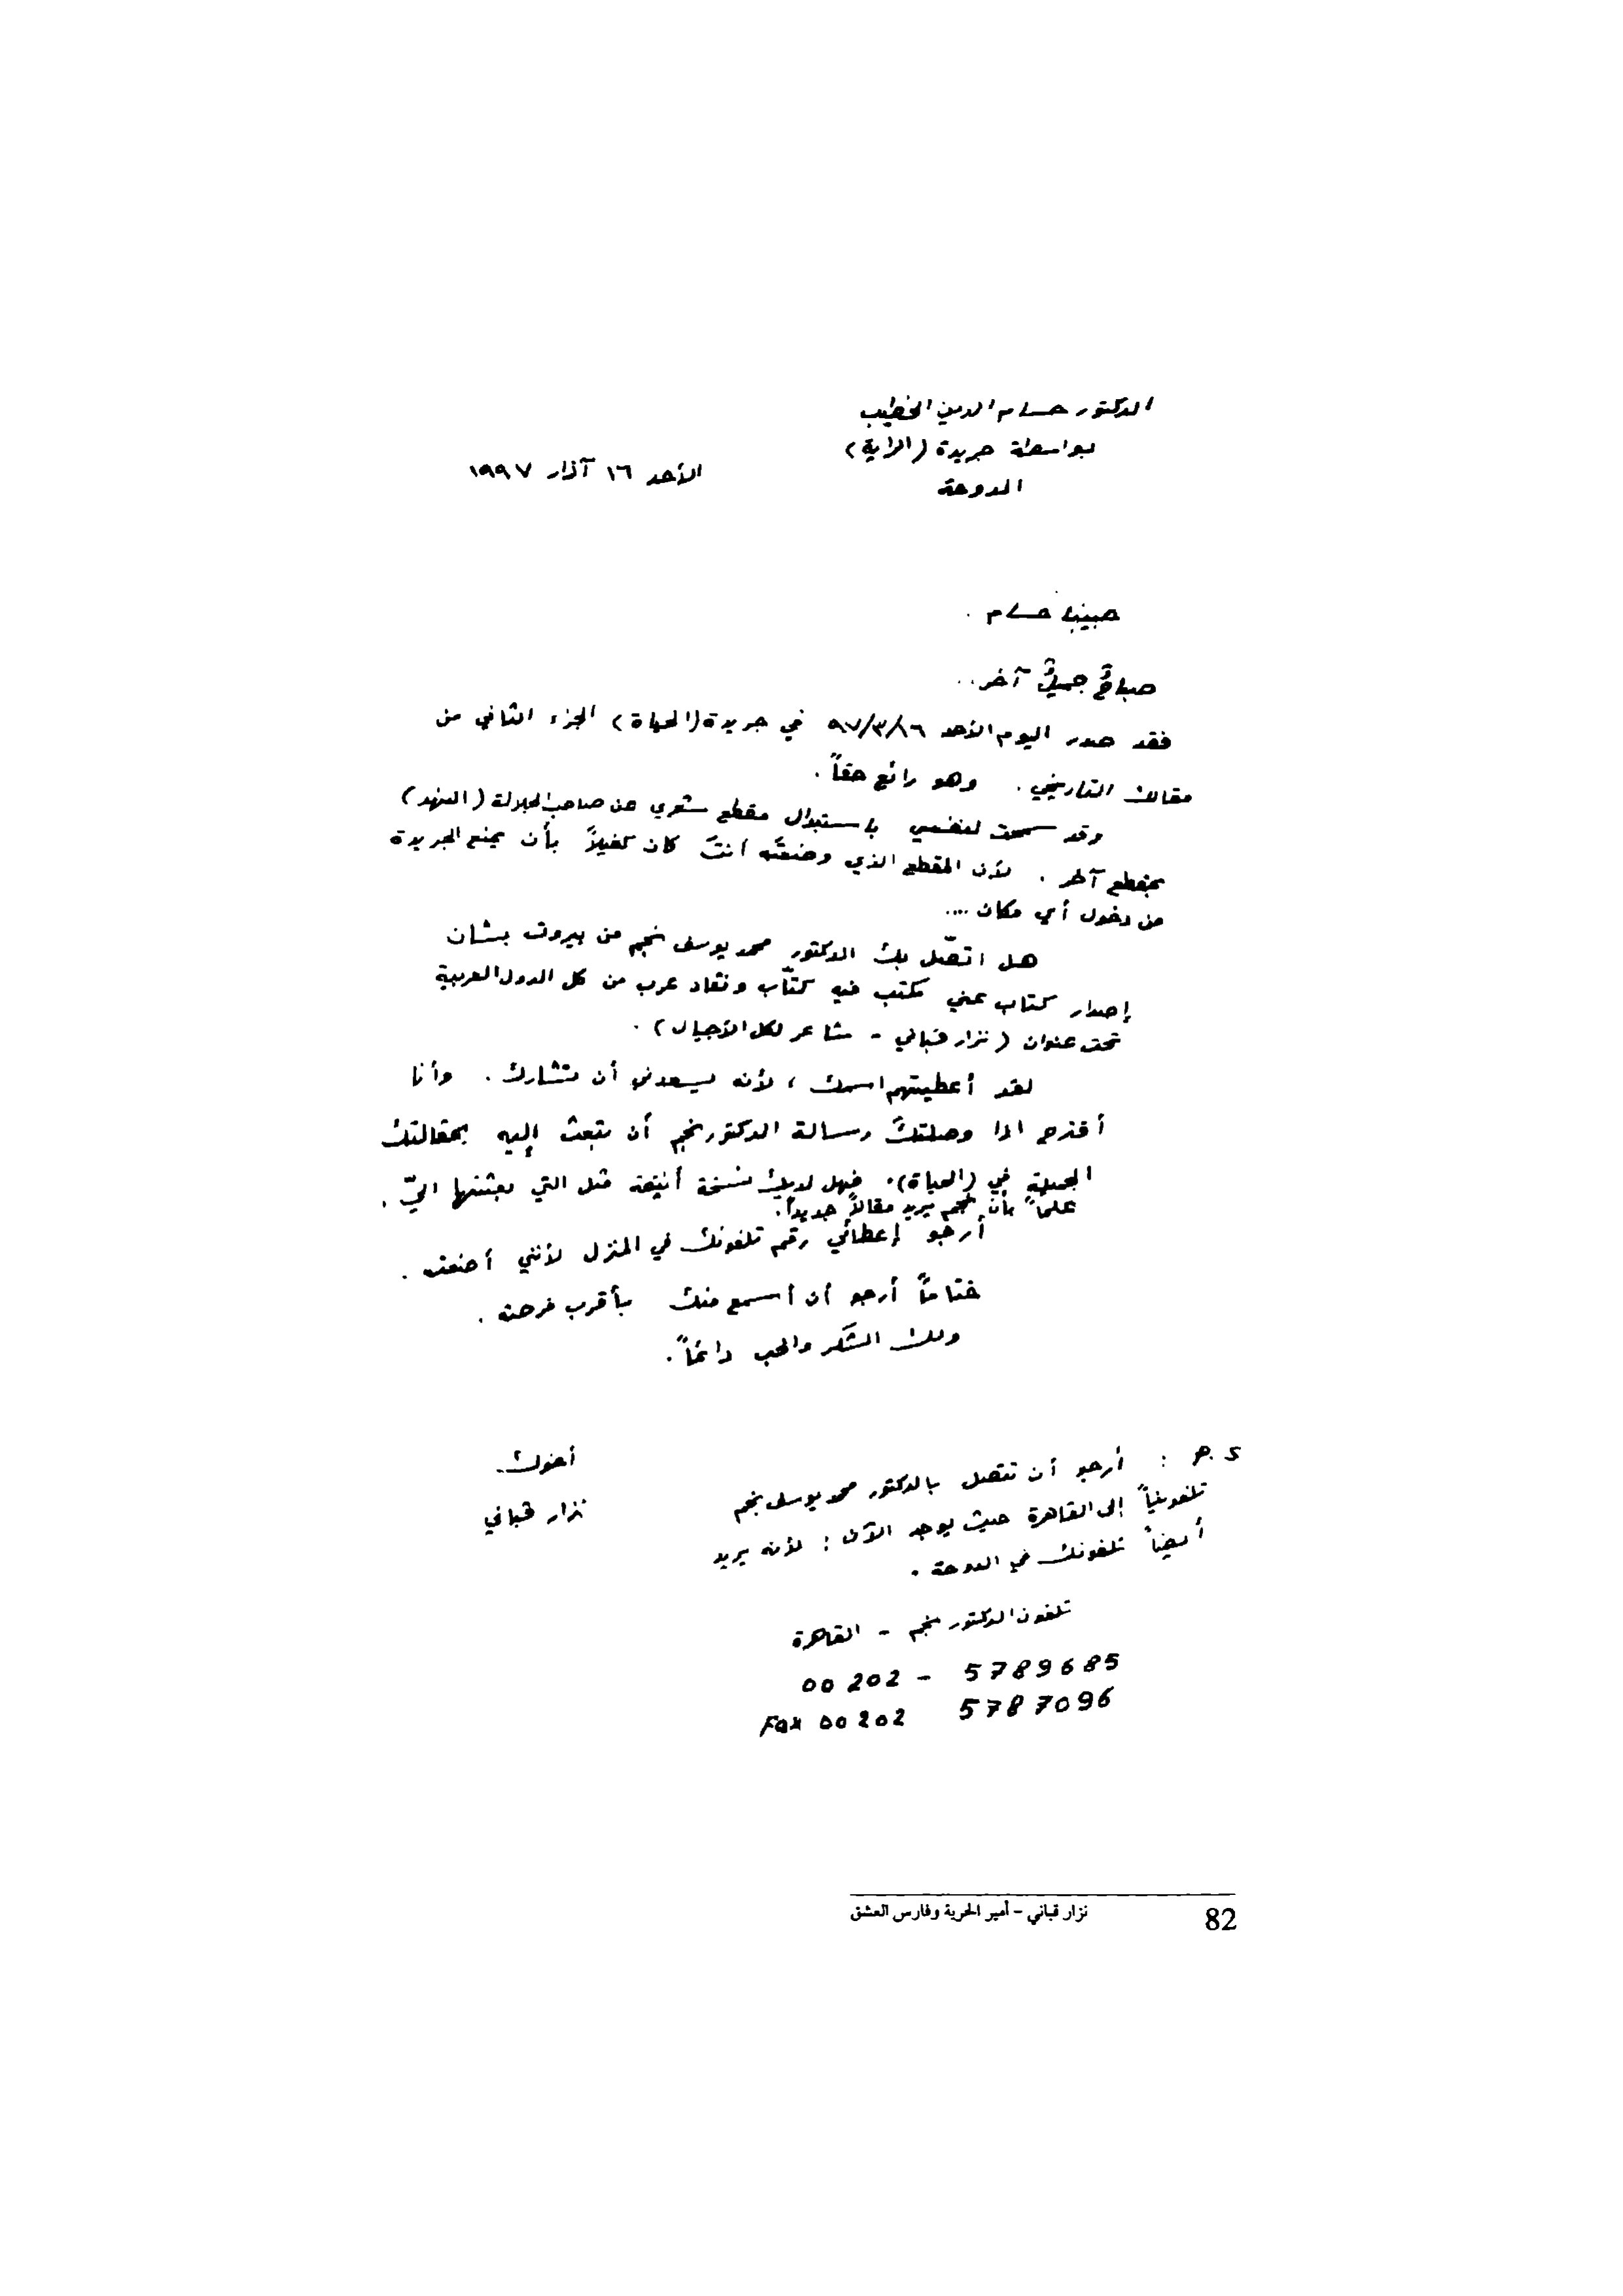 الدكتور حسام الدين الخطيب
بواسطة جريدة (الراية)
الدوحة
الأحد ١٦ آذار ١٩٩٧
حبيبنا حسام .
صباحٌ جميلٌ آخر..
فقد صدر اليوم الأحد ٩٧/٣/١٦ في جريدة (الحياة) الجزء الثاني من
مقالك التاريخي . وهو رائع حقاً .
وقد سمحت لنفسي باستبدال مقطع شعري عن صاحب الجلالة (النهد)
بمقطع آخر . لأن المقطع الذي وضعتَه أنتَ كان كفيلاً بأن يمنع الجريدة
من دخول أي مكان ....
هل اتصّل بك الدكتور محمد يوسف نجم من بيروت بشان
إصدار كتاب عني يكتب فيه كتّاب ونقاد عرب من كل الدول العربية
تحت عنوان (نزار قباني - شاعر لكل الأجيال) .
لقد أعطيتهم اسمك ، لأنه يسعدني أن تشارك . وأنا
أقترح اذا وصلتك رسالة الدكتور نجم أن تبعث إليه بمقالتك
الجميلة في (الحياة). فهل لديك نسخة أنيقة مثل التي بعثتها اليّ .
علماً بأن نجم يريد مقالاً جديداً.
أرجو إعطائي رقم تلفونك في المنزل لأنني أضعته .
ختاماً أرجو أن أسمع منك بأقرب فرصة .
ولك الشكر والحب دائماً .
أخوك
نزار قباني
ح . هـ : أرجو أن تتصل بالدكتور محمد يوسف نجم
تلفونياً إلى القاهرة حيث يوجد الآن : لأنه يريد
أيضاً تلفونك في الدوحة .
تلفون الدكتور نجم - القاهرة
00 202 - 5789685
Fax 00 202 5787096
82 نزار قباني - أمير الحرية وفارس العشق